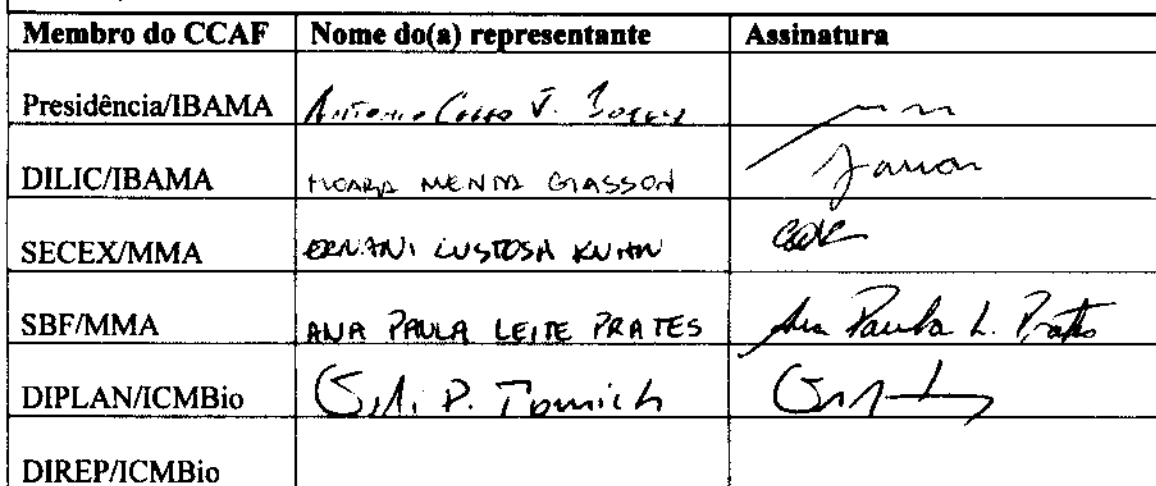 Membro do CCAF Nome do(a) representante Assinatura
Presidência/IBAMA Antonio V.
DILIC/IBAMA MOARA MENTA GIASSON
SECEX/MMA ERNANI CUSTOSA KUHN
SBF/MMA ANA PAULA LEITE PRATES Ana Paula L. Prates
DIPLAN/ICMBio P. Tomich
DIREP/ICMBio